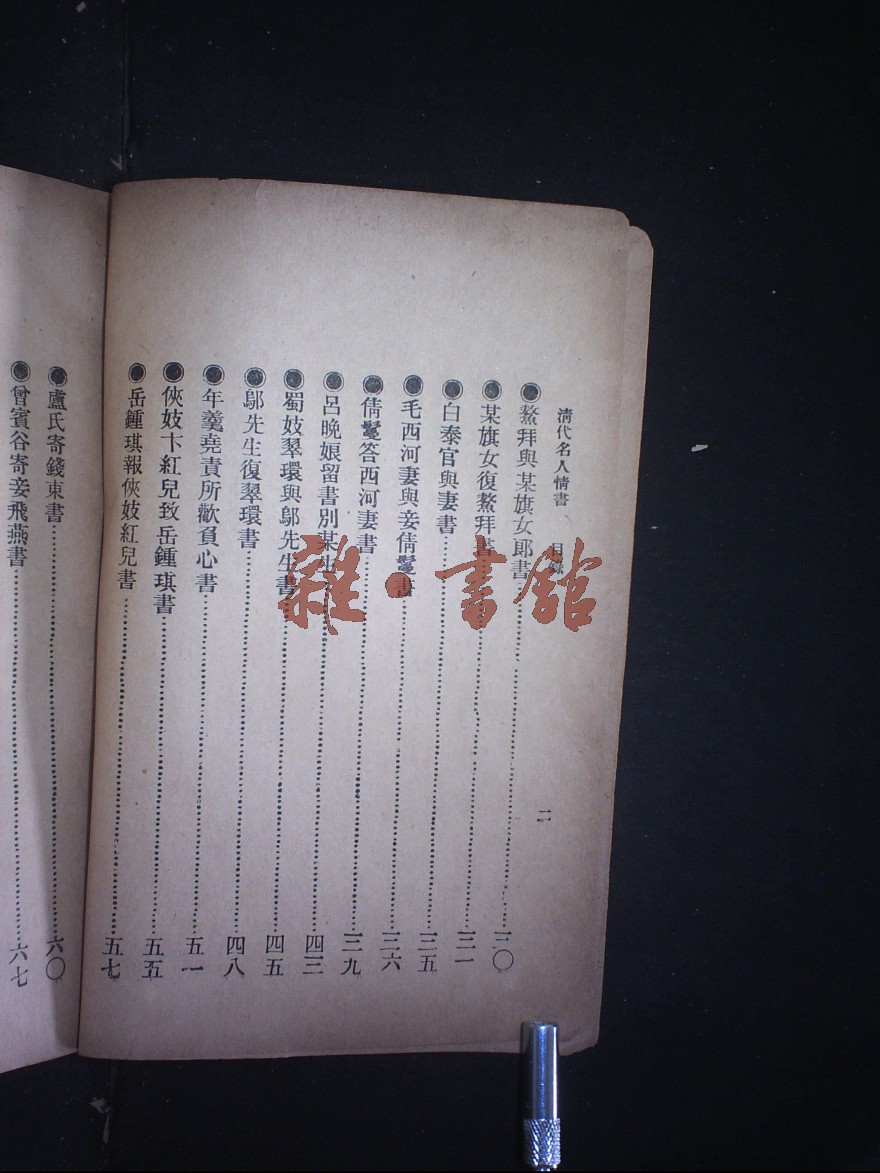 清代名人情書 目錄 二
●鰲拜與某旗女郎書 三〇
●某旗女復鰲拜書 三一
●白泰官與妻書 三五
●毛西河妻與妾倩鬟書 三六
●倩鬟答西河妻書 三九
●呂晚娘留書別某生 四三
●蜀妓翠環與鄔先生書 四五
●鄔先生復翠環書 四八
●年羹堯責所歡負心書 五一
●俠妓卞紅兒致岳鍾琪書 五五
●岳鍾琪報俠妓紅兒書 五七
●盧氏寄錢東書 六〇
●曾賓谷寄妾飛燕書 六七
雜·書館